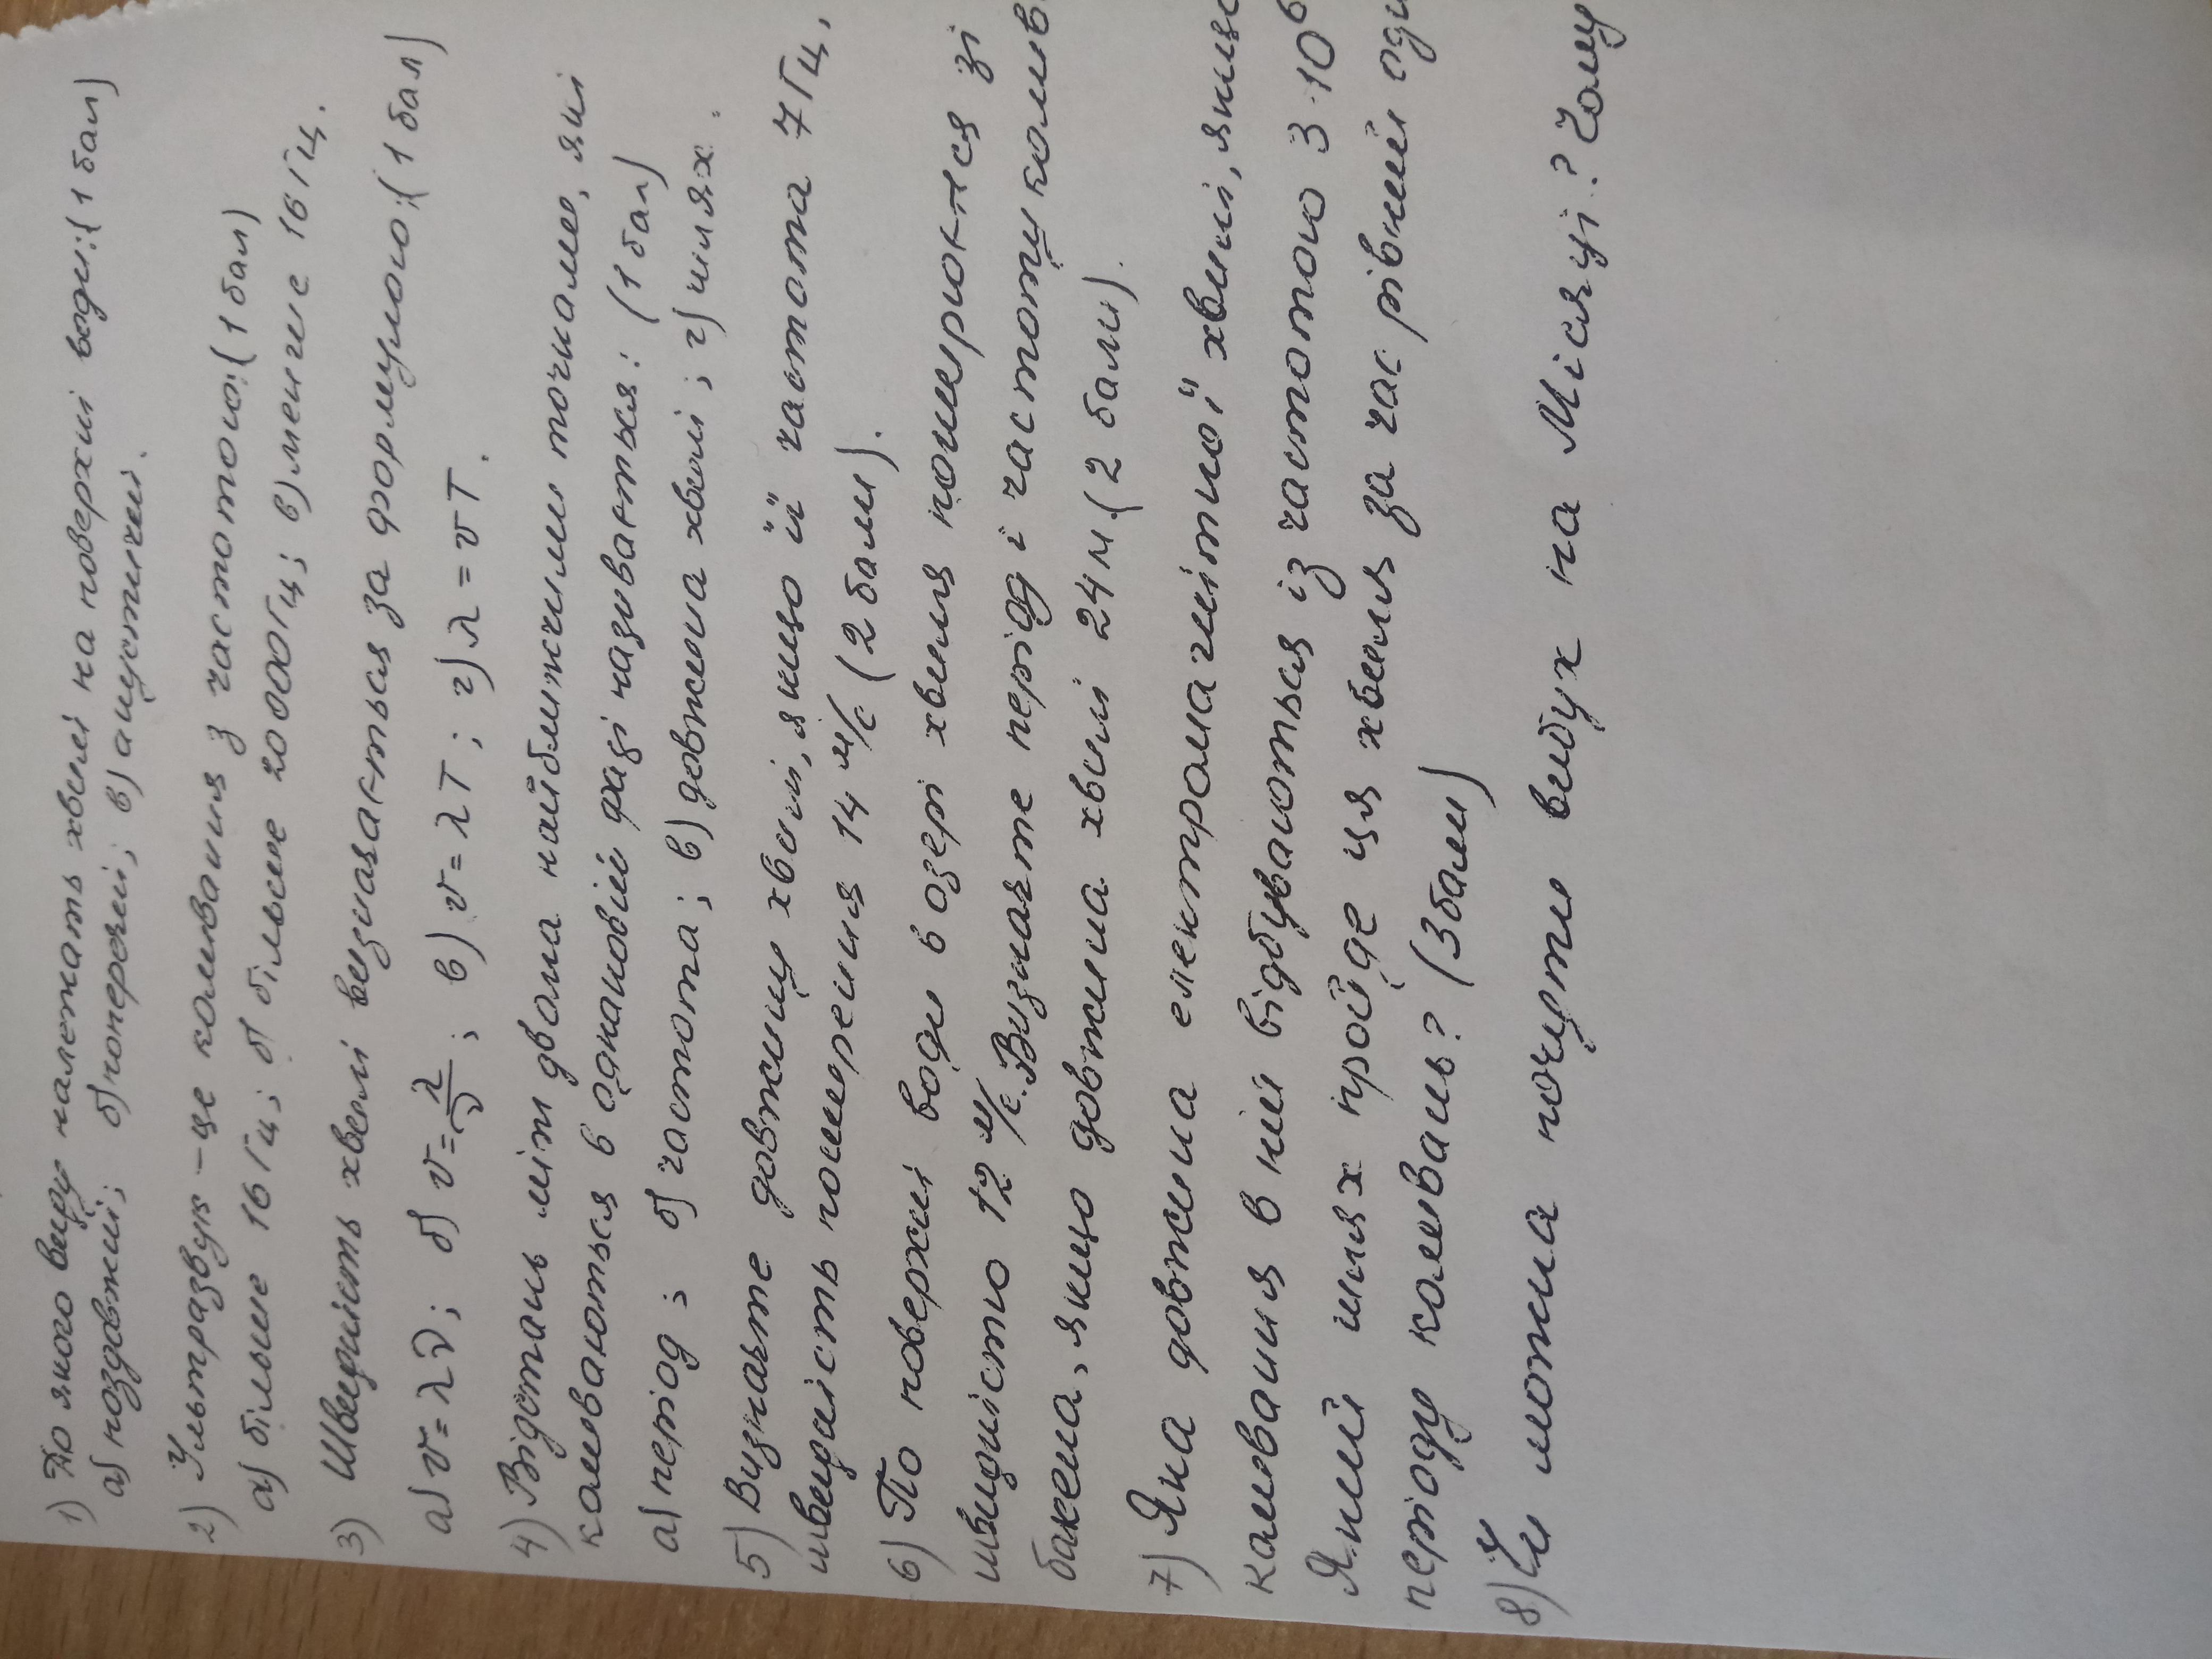 1) До якого виду належать хвилі на поверхні води:(1 бал)
а) поздовжні; б) поперечні; в) акустичні.
2) Ультразвук – це коливання з частотою:(1 бал)
а) більше 16 Гц; б) більше 20 000 Гц; в) менше 16 Гц.
3) Швидкість хвилі визначається за формулою:(1 бал)
а) v = λν; б) v = λ/ν; в) v = λT; г) λ = vT.
4) Відстань між двома найближчими точками, які
коливаються в однаковій фазі називається: (1 бал)
а) період; б) частота; в) довжина хвилі; г) шлях.
5) Визначте довжину хвилі, якщо її частота 7 Гц,
швидкість поширення 14 м/с (2 бали).
6) По поверхні води в озері хвиля поширюється зі
швидкістю 12 м/с. Визначте період і частоту колив
бакена, якщо довжина хвилі 24 м.(2 бали).
7) Яка довжина електромагнітної хвилі, якщо
коливання в ній відбуваються із частотою 3·10⁶
Який шлях пройде ця хвиля за час рівний оди
періоду коливань? (3 бали)
8) Чи можна почути вибух на Місяці? Чому